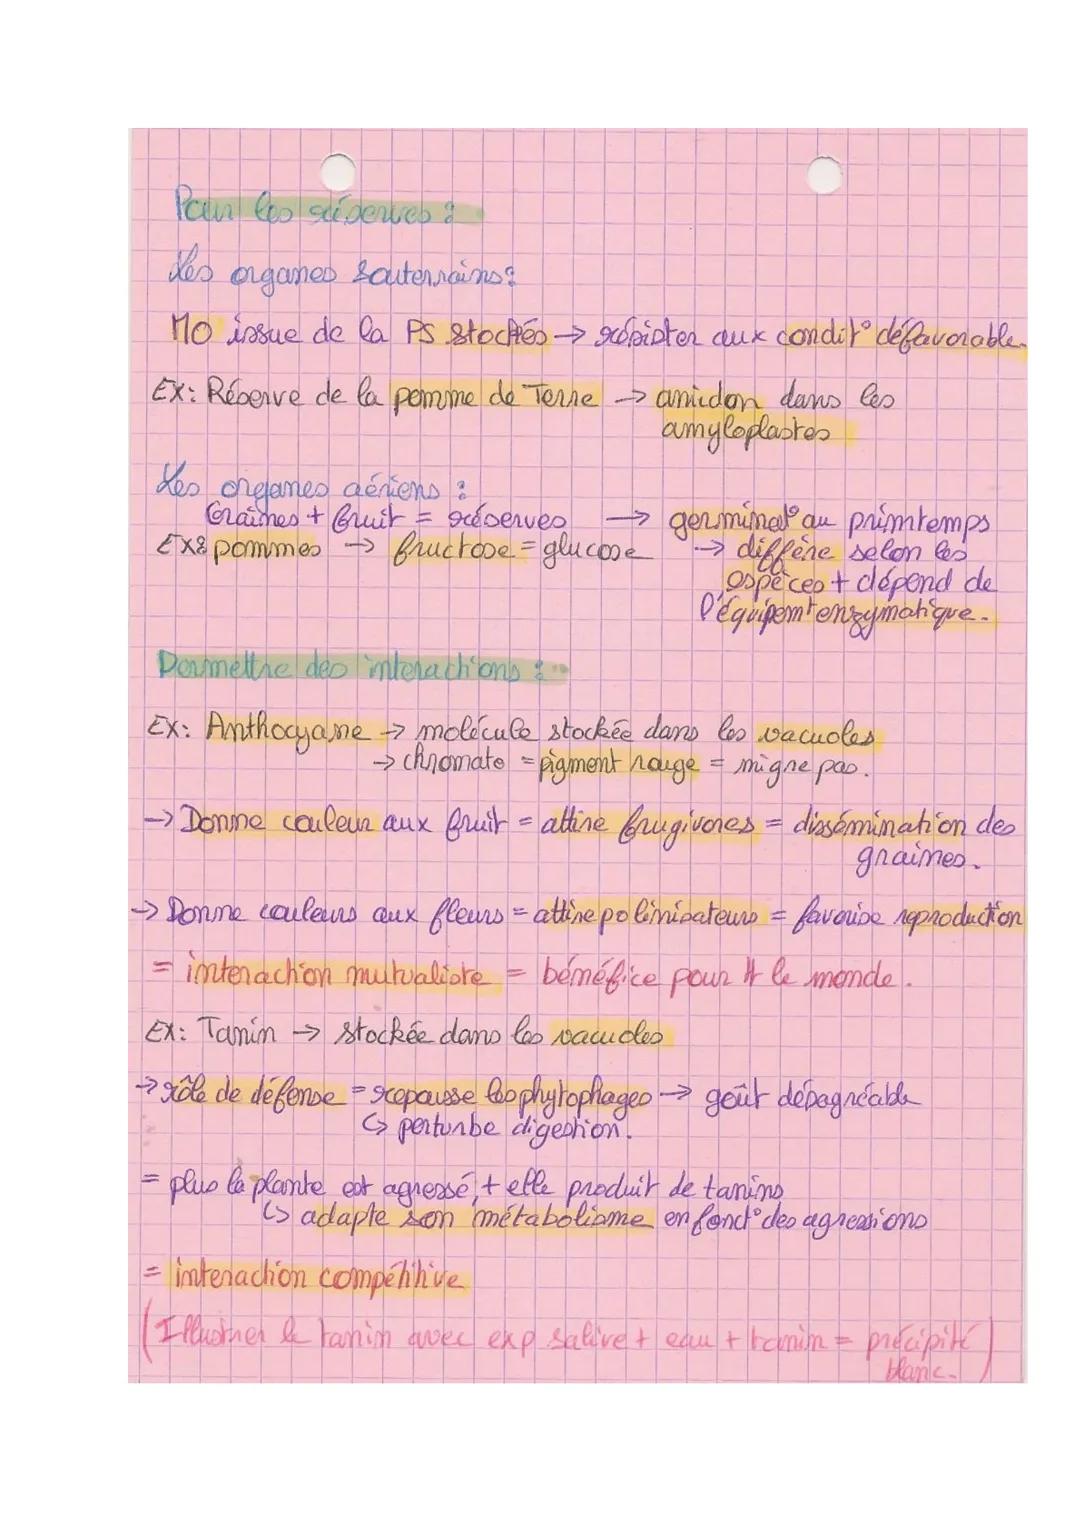 Pour les réserves :
Les organes souterrains :
MO issue de la PS stockés → résister aux condit° défavorable.
Ex: Réserve de la pomme de Terre → amidon dans les
amyloplastes
Les organes aériens :
Graines + fruit = réserves → germinat° au primtemps
Ex: pommes → fructose = glucose → diffère selon les
espèces + dépend de
l'équipemt enzymatique.
Permettre des interactions :
Ex: Anthocyane → molécule stockée dans les vacuoles
→ chromato = pigment rouge = migre pas.
→ Donne couleur aux fruit = attire frugivores = dissémination des
graines.
→ Donne couleurs aux fleurs = attire polinisateurs = favorise reproduction
= interaction mutualiste = bénéfice pour tt le monde.
Ex: Tanin → stockée dans les vacuoles
→ rôle de défense = repousse les phytophages → goût désagréable
↳ perturbe digestion.
= plus la plante est agressé, + elle produit de tanins
↳ adapte son métabolisme en fonct° des agressions
= interaction compétitive
(Illustrer le tanin avec exp salive + eau + tanin = précipité
blanc.)